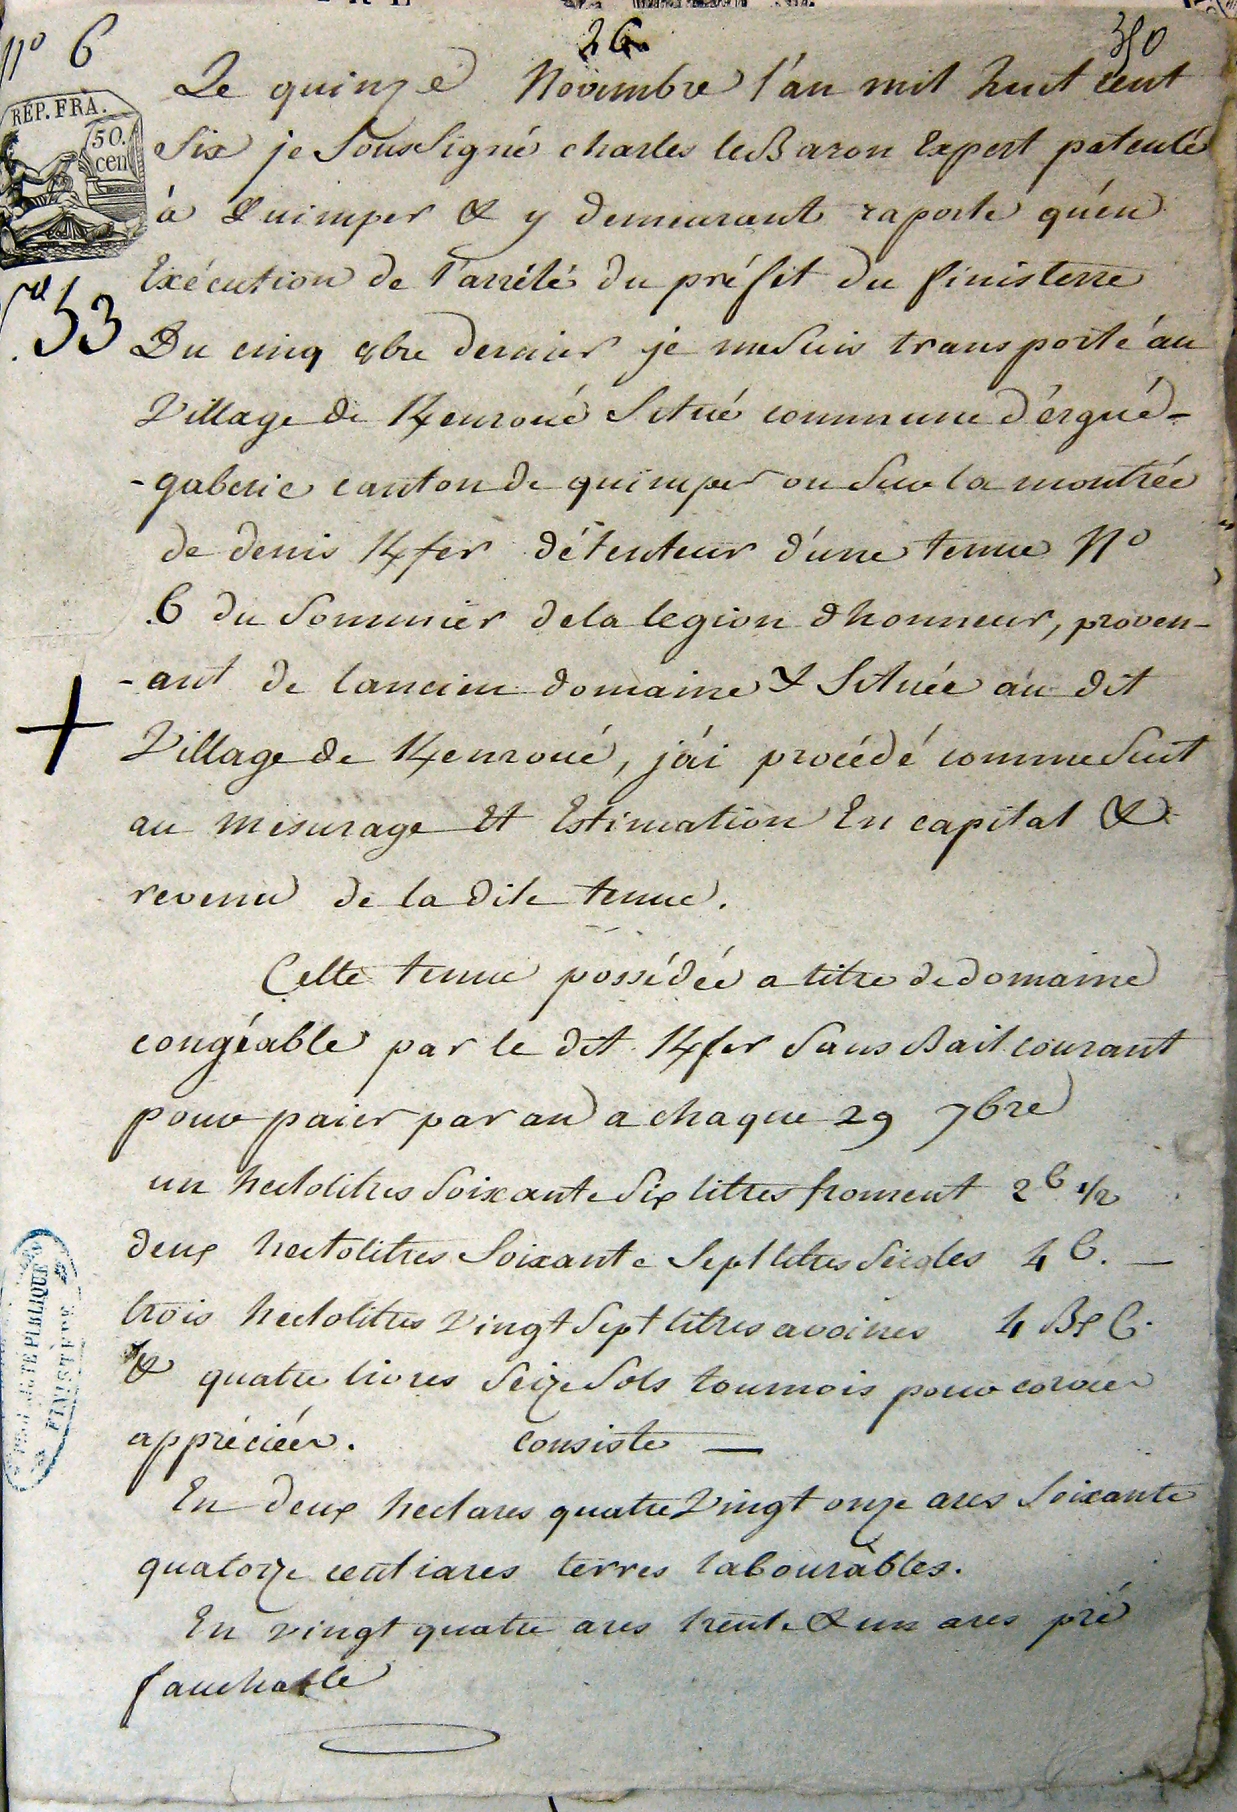 nº 6
26
350
RÉP. FRA.
50.
cen
53
Le quinze Novembre l'an mil huit cent
Six je Soussigné charles le Baron Expert patenté
à Quimper & y demeurant raporte qu'en
Exécution de l'arrété du préfet du finisterre
Du cinq 8bre dernier je me Suis transporté au
Village de Kenroué Situé commune d'érgué-
-gaberic canton de quimper ou Sur la montrée
de denis Kfer détenteur d'une tenue Nº
6 du Sommier de la legion d'honneur, proven-
-ant de lancien domaine & Située au dit
Village de Kenroué, j'ai procédé comme Suit
au mesurage Et Estimation En capital &
revenu de la dite tenue.
Cette tenue possédée a titre de domaine
congéable par le dit Kfer Sans Bail courant
pour paier par an a chaque 29 7bre
un hectolitres Soixante Six litres froment 2 b 1/2
deux hectolitres Soixante Sept litres Seigles 4 b. —
trois hectolitres Vingt Sept litres avoines 4 B C.
& quatre livres Seize Sols tournois pour corvées
appréciées. consiste —
En deux hectares quatre Vingt onze ares Soixante
quatorze centiares terres labourables.
En vingt quatre ares trente & un ares pré
fauchable
FINISTÈRE